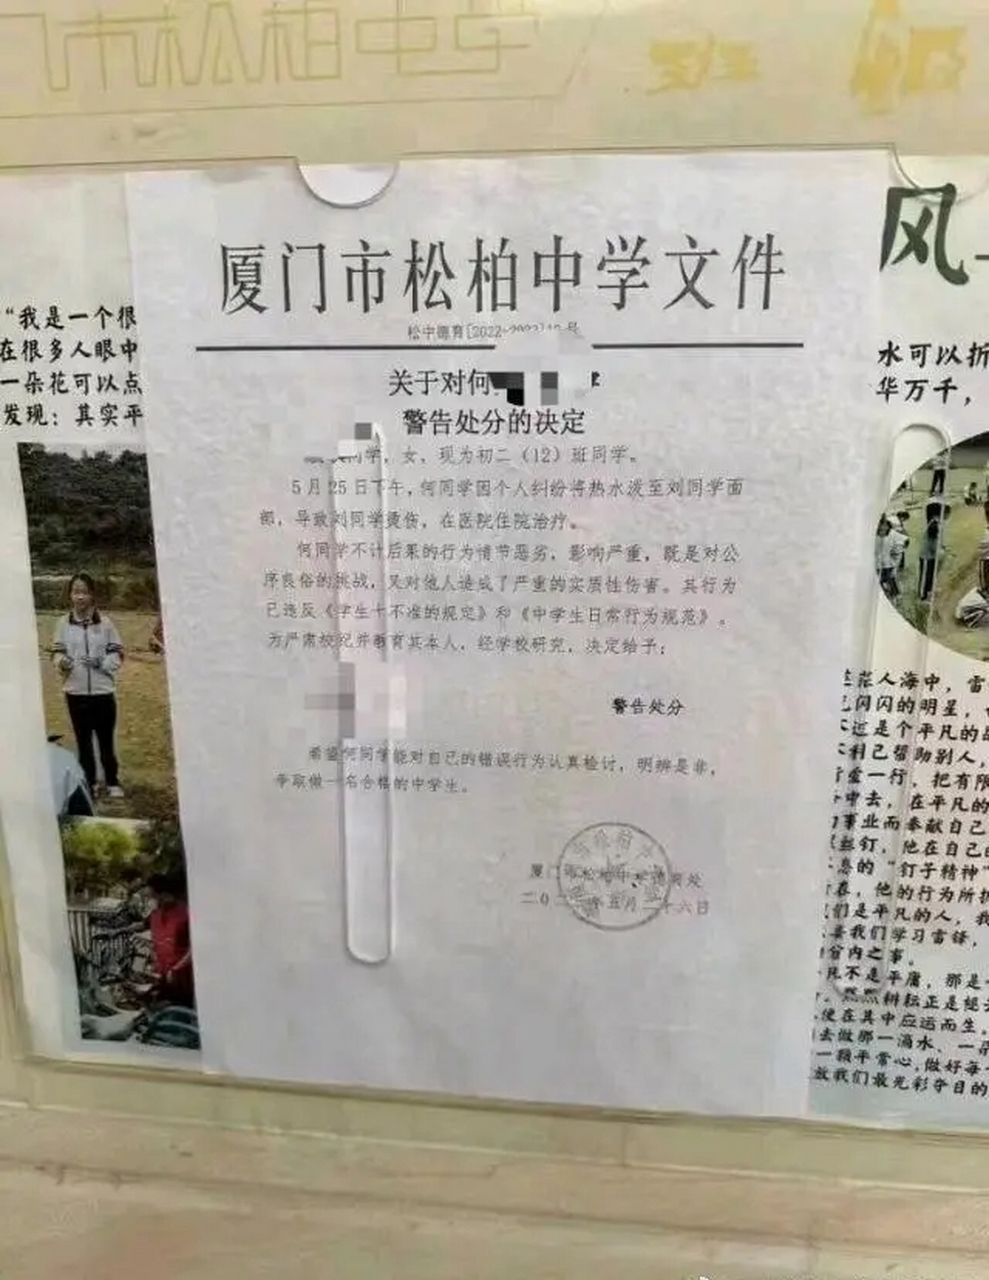 市松柏中学
厦门市松柏中学文件
松中德育[2022-2023]12号
关于对何
警告处分的决定
同学，女，现为初二（12）班同学。
5月25日下午，何同学因个人纠纷将热水泼至刘同学面
部，导致刘同学烫伤，在医院住院治疗。
何同学不计后果的行为情节恶劣，影响严重，既是对公
序良俗的挑战，又对他人造成了严重的实质性伤害。其行为
已违反《学生十不准的规定》和《中学生日常行为规范》。
为严肃校纪并教育其本人，经学校研究，决定给予：
警告处分
希望何同学能对自己的错误行为认真检讨，明辨是非，
争取做一名合格的中学生。
厦门市松柏中学德育处
二〇二 年五月二十六日
“我是一个很
在很多人眼中
一朵花可以点
发现：其实平
风
水可以折
华万千，
茫人海中，雷
闪闪的明星，
过是个平凡的
利己帮助别人，
一行，把有限
中去，在平凡的
事业而奉献自己
丝钉，他在自己
的“钉子精神”
他的行为所折
们是平凡的人，我
要我们学习雷锋，
分内之事。
凡不是平庸，那是
默默耕耘正是
使在其中应运而生，
去做那一滴水、一朵
一颗平常心,做好每
放我们最光彩夺目的